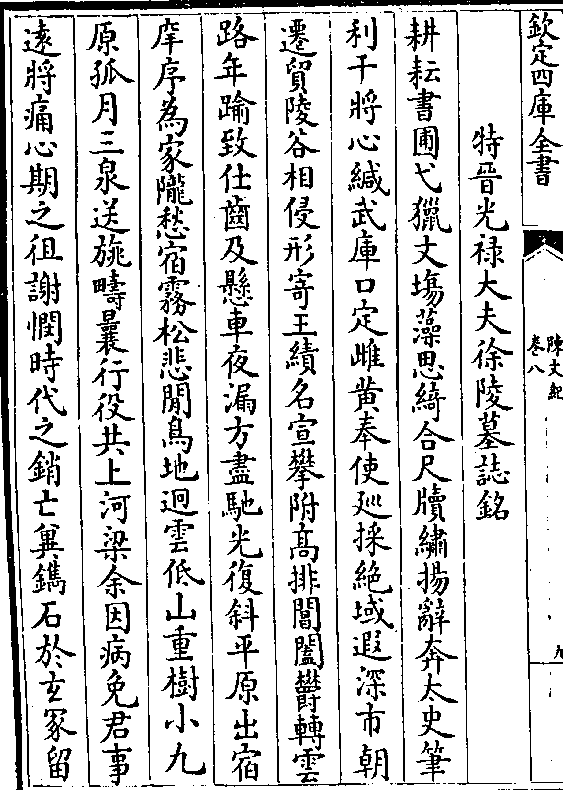 欽定四庫全書
陳文紀
卷八
九
特晉光祿大夫徐陵墓誌銘
耕耘書圃弋獵文塲藻思綺合尺牘繡揚辭奔太史筆
利干將心緘武庫口定雌黄奉使廵採絶域遐深市朝
遷貿陵谷相侵形寄王績名宣攀附高排閶闔欝轉雲
路年踰致仕齒及懸車夜漏方盡馳光復斜平原出宿
庠序為家隴愁宿霧松悲閴鳥地迥雲低山重樹小九
原孤月三泉送旐疇曩行役共上河梁余因病免君事
逺將痛心期之徂謝憫時代之銷亡冀鐫石於𤣥冢留